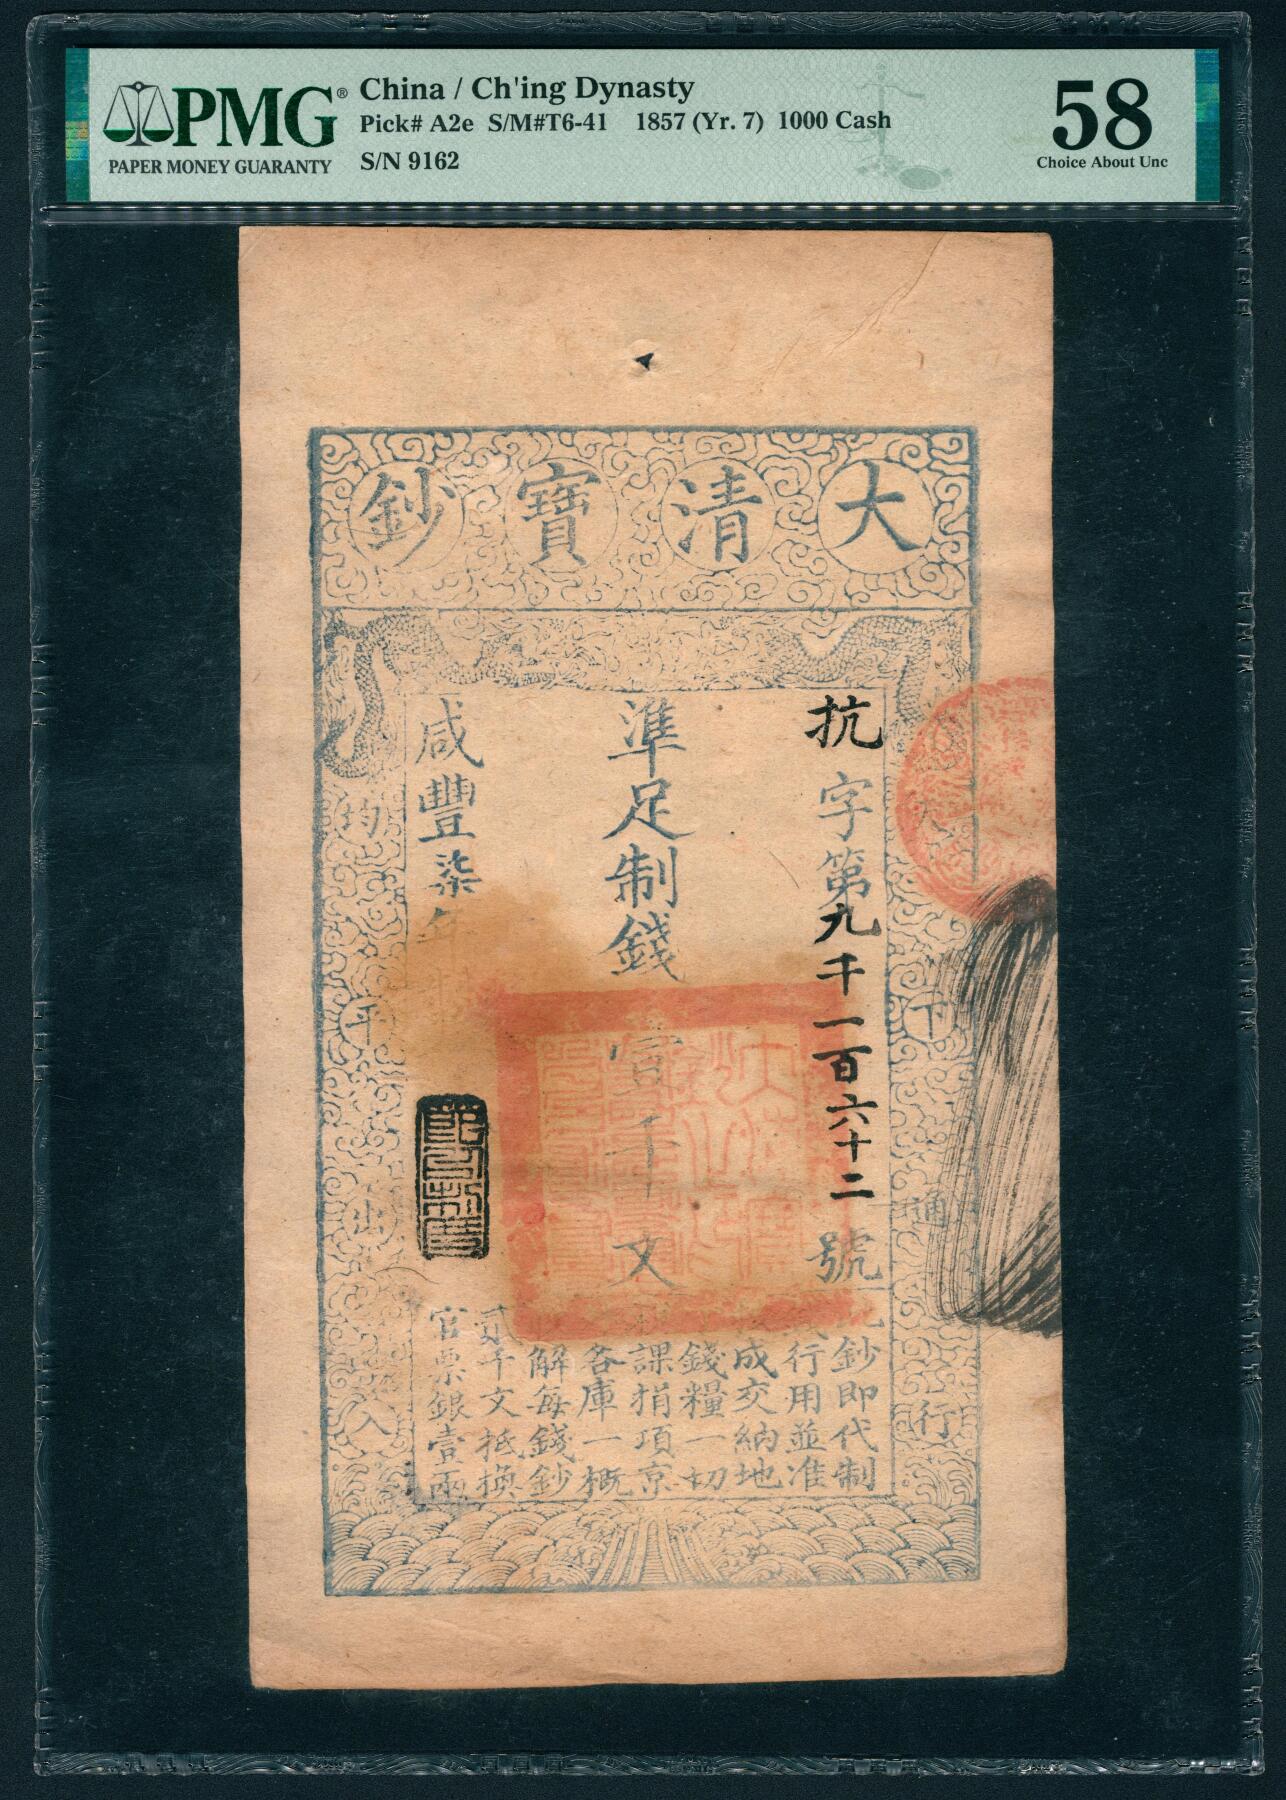 PMG®
PAPER MONEY GUARANTY
China / Ch'ing Dynasty
Pick# A2e S/M#T6-41 1857 (Yr. 7) 1000 Cash
S/N 9162
58
Choice About Unc
大清寶鈔
抗字第九千一百六十二號
準足制錢壹千文
咸豐柒年製
天下通行
均平出入
此鈔即代制
錢行用並准
按成交納地
丁錢糧一切
稅課捐項京
外各庫一概
收解每錢鈔
貳千文抵換
官票銀壹兩